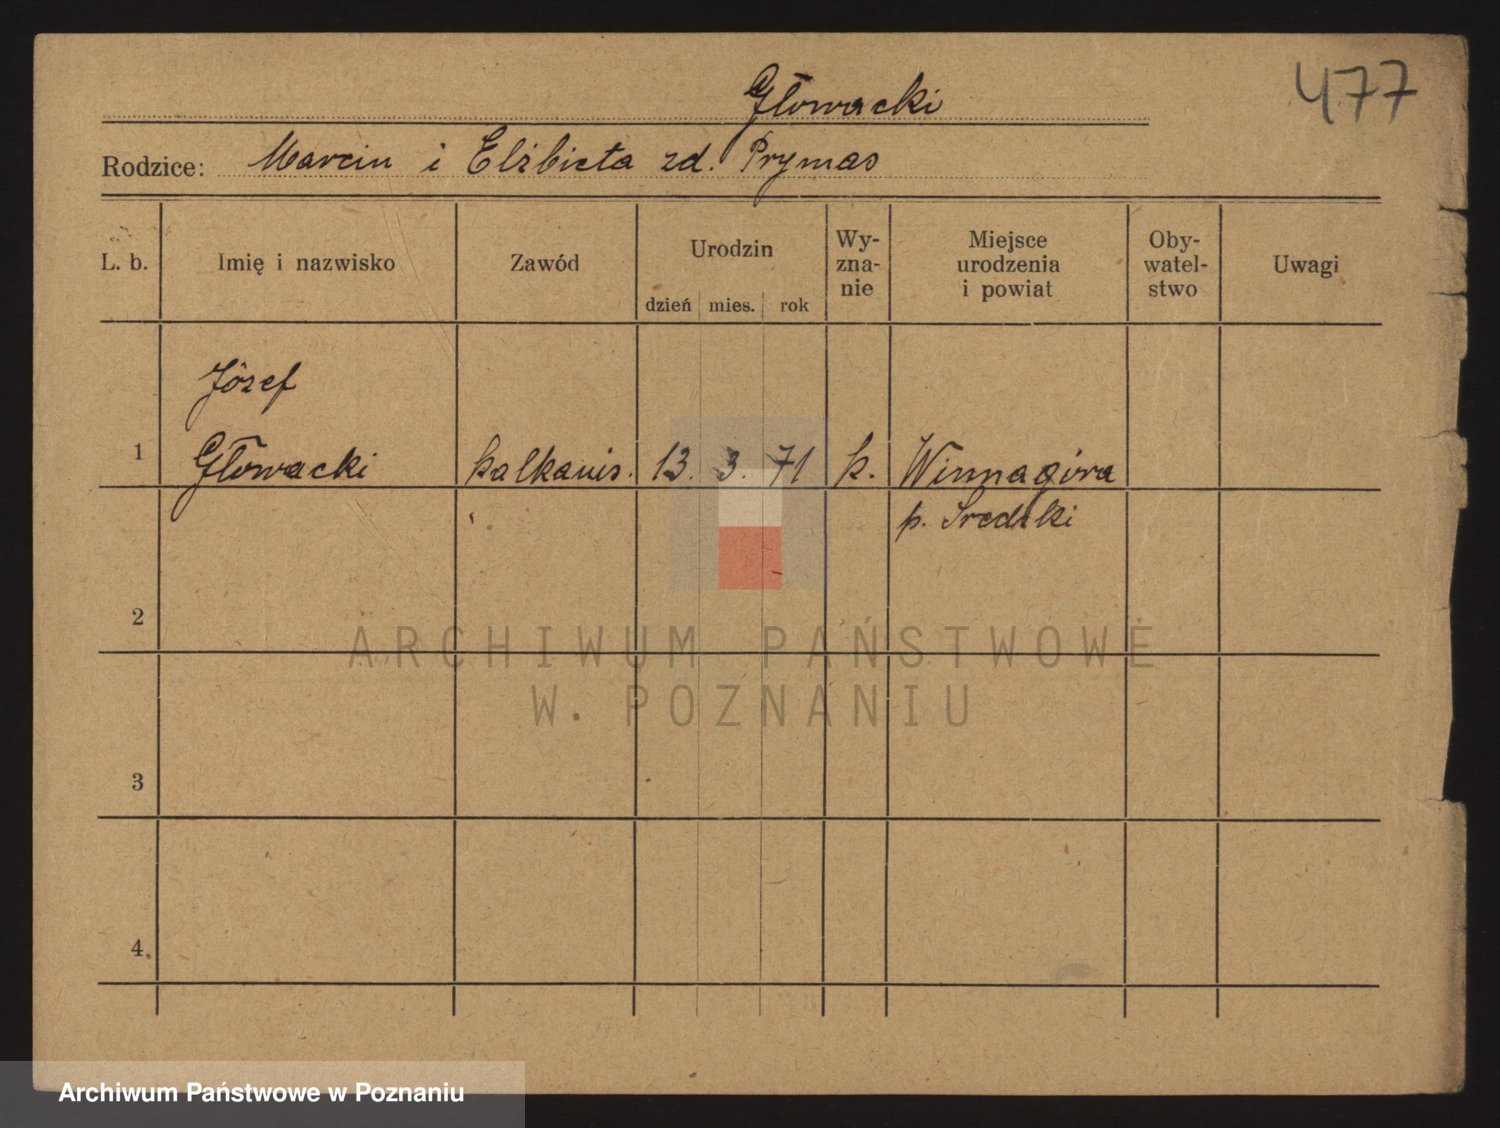 Głowacki
477
Rodzice: Marcin i Elżbieta zd. Prymas
L. b. Imię i nazwisko Zawód Urodzin dzień mies. rok Wy-zna-nie Miejsce urodzenia i powiat Oby-watel-stwo Uwagi
Józef
1 Głowacki 13. 3. 71 k. Winnagóra
p. Sredzki
2
ARCHIWUM PAŃSTWOWE
W POZNANIU
3
4
Archiwum Państwowe w Poznaniu